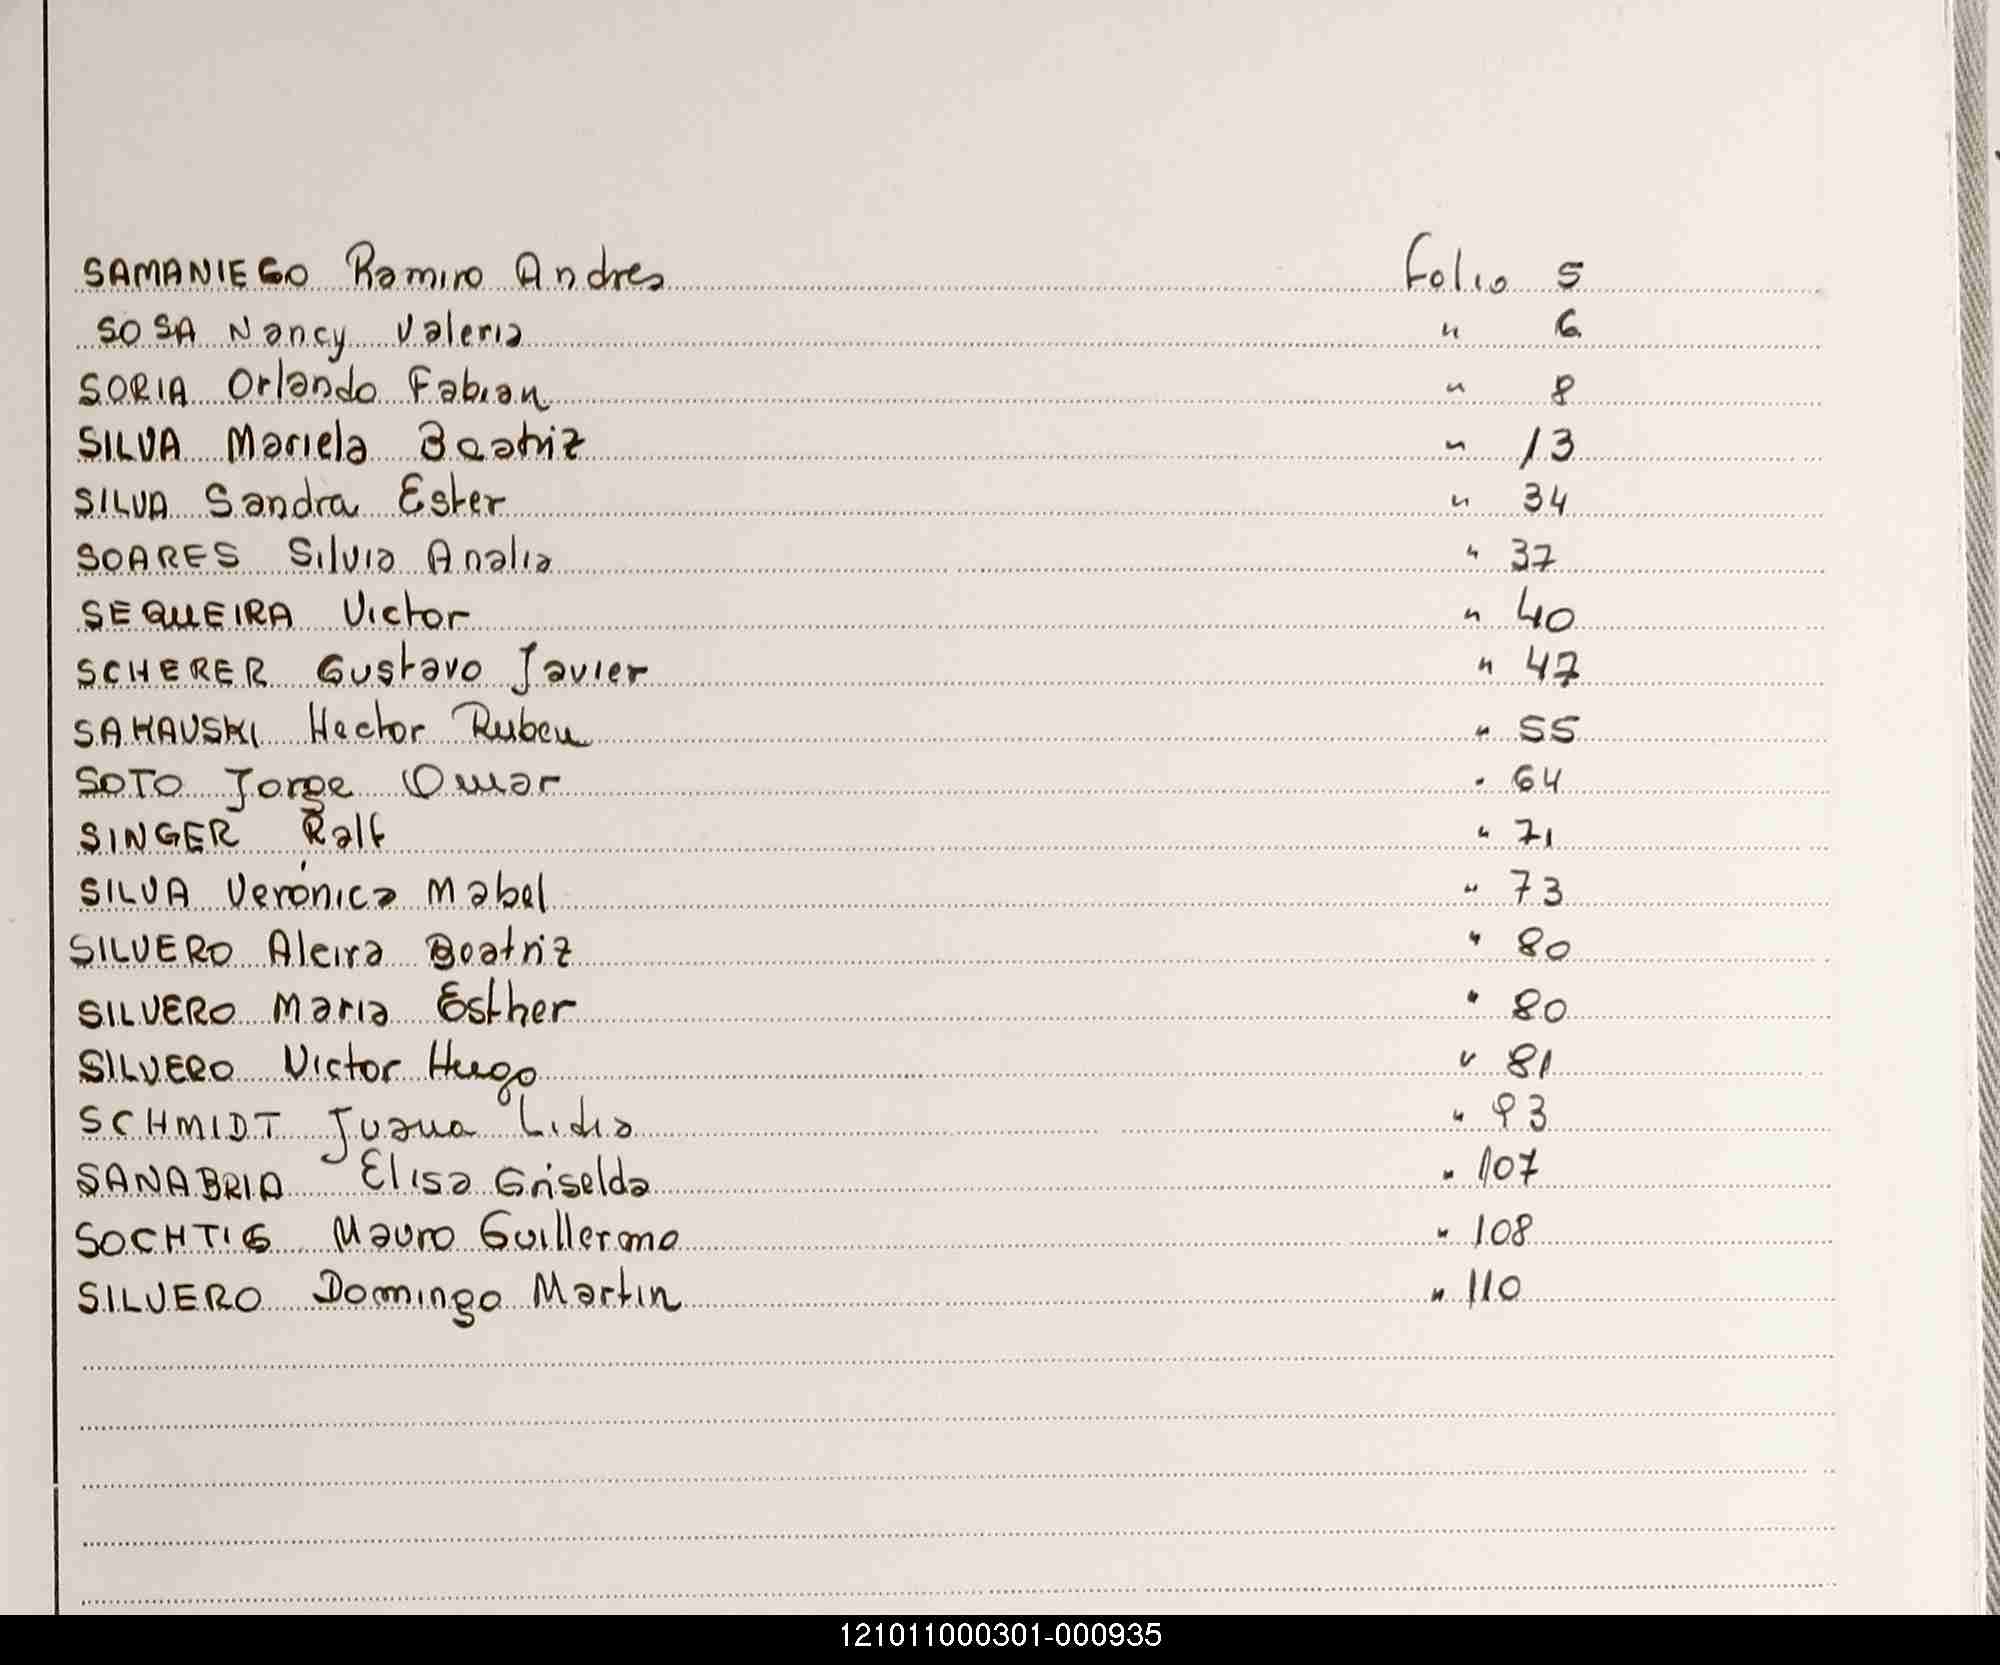 SAMANIEGO Ramiro Andres Folio 5
SOSA Nancy Valeria " 6
SORIA Orlando Fabian " 8
SILVA Mariela Beatriz " 13
SILVA Sandra Ester " 34
SOARES Silvia Analia " 37
SEQUEIRA Victor " 40
SCHERER Gustavo Javier " 47
SAKAUSKI Hector Ruben " 55
SOTO Jorge Omar " 64
SINGER Ralf " 71
SILVA Verónica Mabel " 73
SILVERO Alcira Beatriz " 80
SILVERO Maria Esther " 80
SILVERO Victor Hugo " 81
SCHMIDT Juana Lidia " 93
SANABRIA Elisa Griselda " 107
SOCHTIG Mauro Guillermo " 108
SILVERO Domingo Martin " 110
121011000301-000935